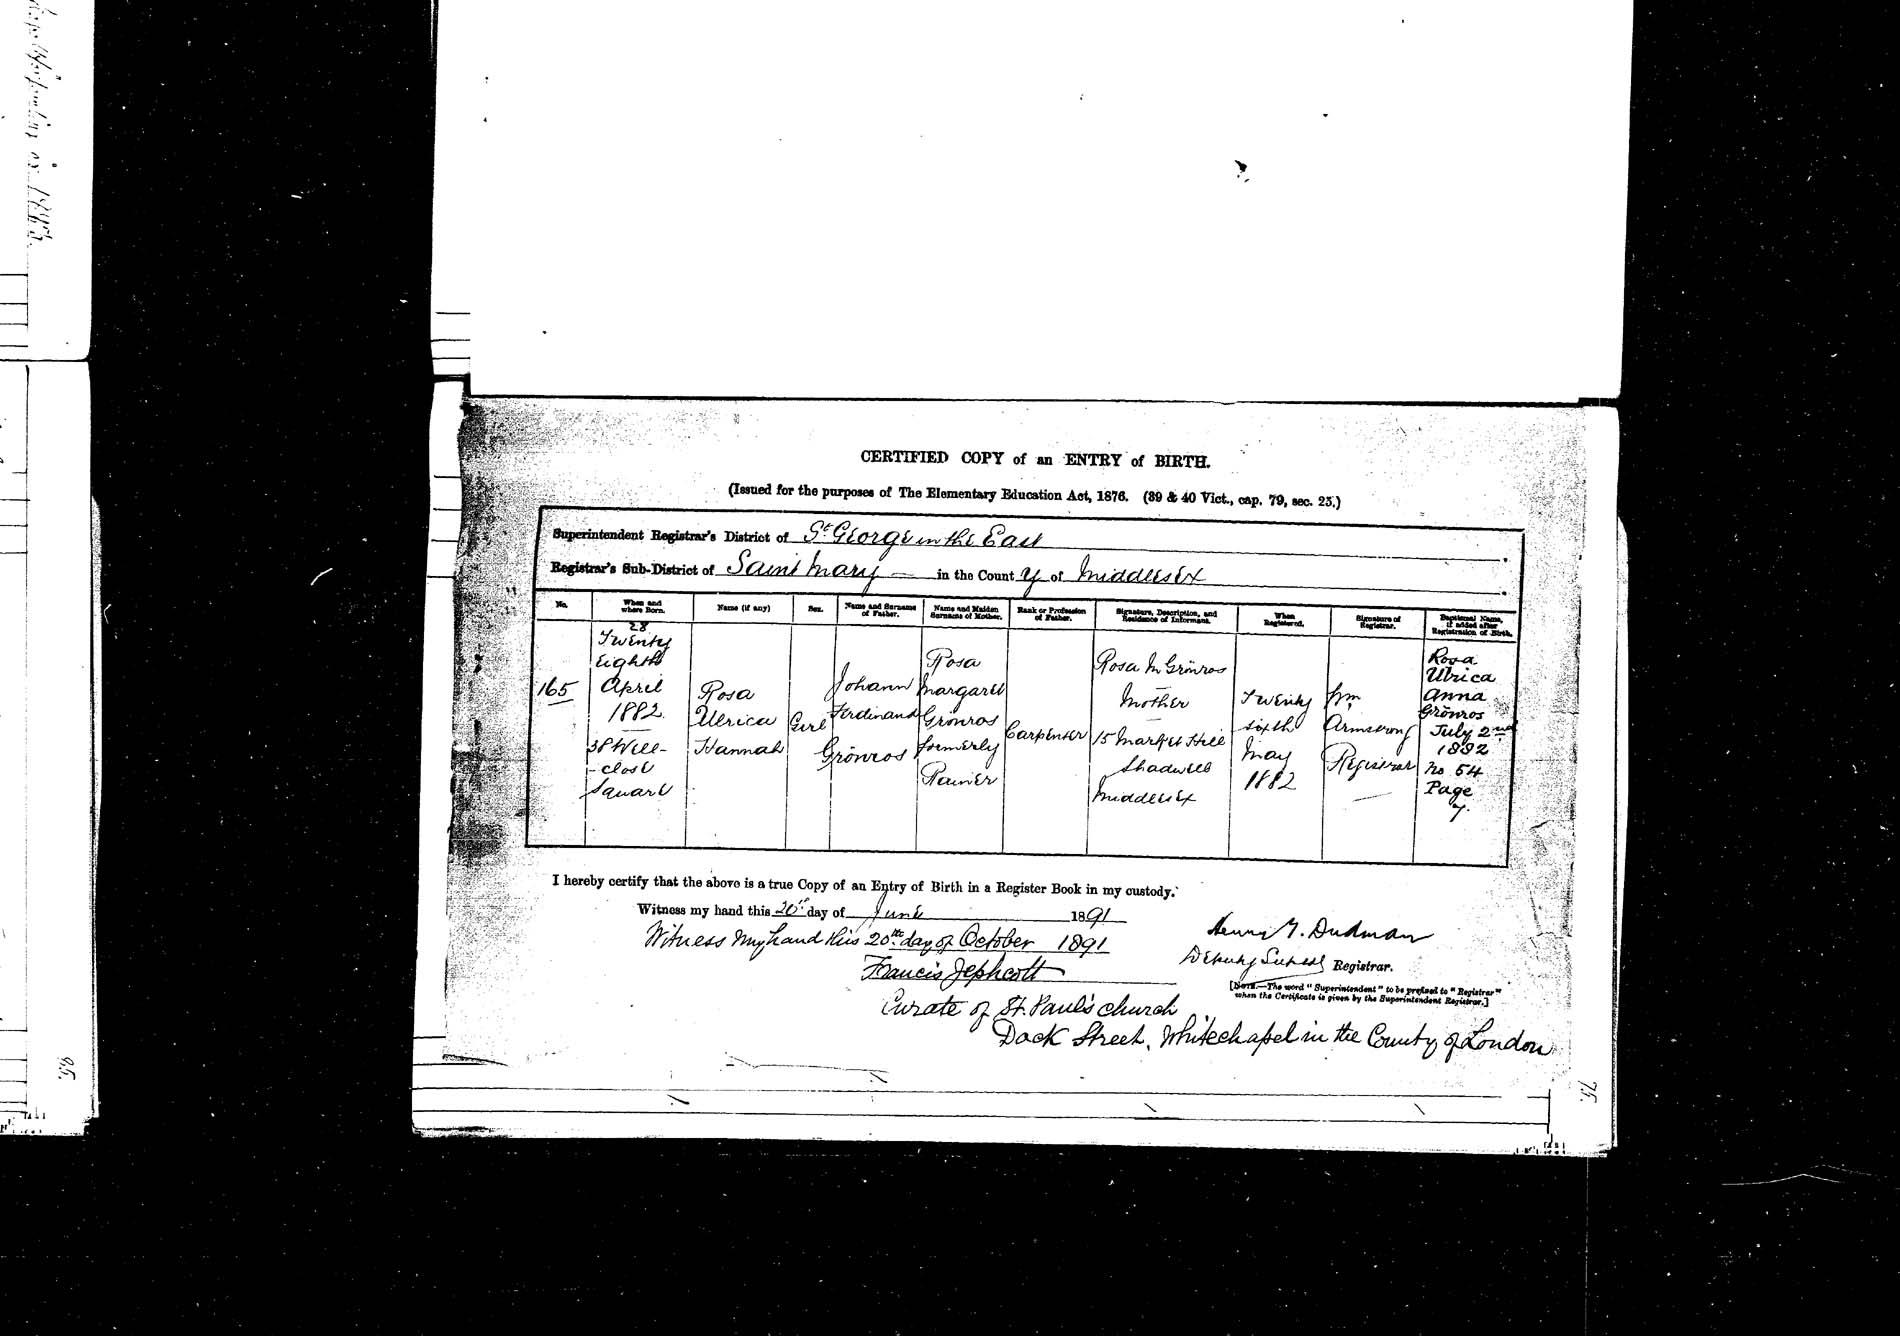 CERTIFIED COPY of an ENTRY of BIRTH.
(Issued for the purposes of The Elementary Education Act, 1876. (39 & 40 Vict., cap. 79, sec. 25.)
Superintendent Registrar's District of St George in the East
Registrar's Sub-District of Saint Mary — in the County of Middlesex
No.
When and where Born.
Name (if any)
Sex.
Name and Surname of Father.
Name and Maiden Surname of Mother.
Rank or Profession of Father.
Signature, Description, and Residence of Informant.
When Registered.
Signature of Registrar.
Baptismal Name, if added after Registration of Birth.
165
28
Twenty
Eighth
April
1882
38 Well-
-close
Square
Rosa
Ulrica
Hannah
Girl
Johann
Ferdinand
Grönros
Rosa
Margaret
Grönros
formerly
Rainer
Carpenter
Rosa M Grönros
Mother
15 Market Hill
Shadwell
Middlesex
Twenty
sixth
May
1882
Wm
Armstrong
Registrar
Rosa
Ulrica
Anna
Grönros
July 2nd
1882
No 54
Page
7.
I hereby certify that the above is a true Copy of an Entry of Birth in a Register Book in my custody.
Witness my hand this 20th day of June 1891
Witness my hand this 20th day of October 1891
Henry T. Dudman
Deputy Supdt Registrar.
Francis Jephcott
[NOTE.—The word "Superintendent" to be prefixed to "Registrar"
when the Certificate is given by the Superintendent Registrar.]
Curate of St. Paul's church
Dock Street, Whitechapel in the County of London
75.